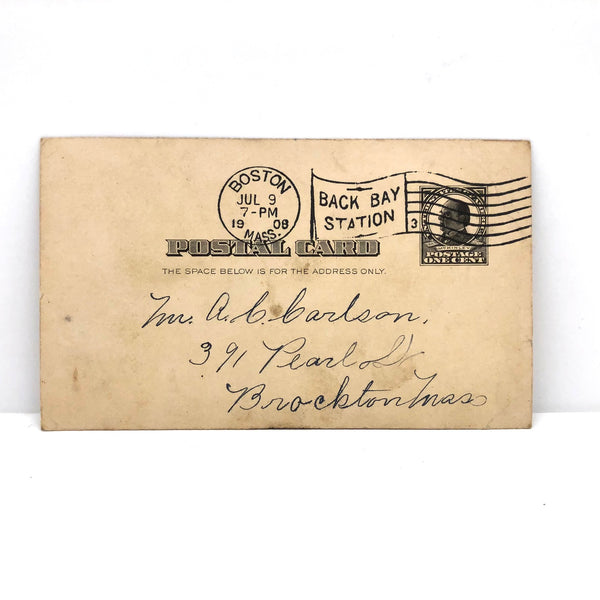 BOSTON
JUL 9
7-PM
19 08
MASS.
BACK BAY
STATION
3
POSTAL CARD
McKINLEY
POSTAGE
ONE CENT
THE SPACE BELOW IS FOR THE ADDRESS ONLY.
Mr. A. C. Carlson,
391 Pearl St
Brockton Mass